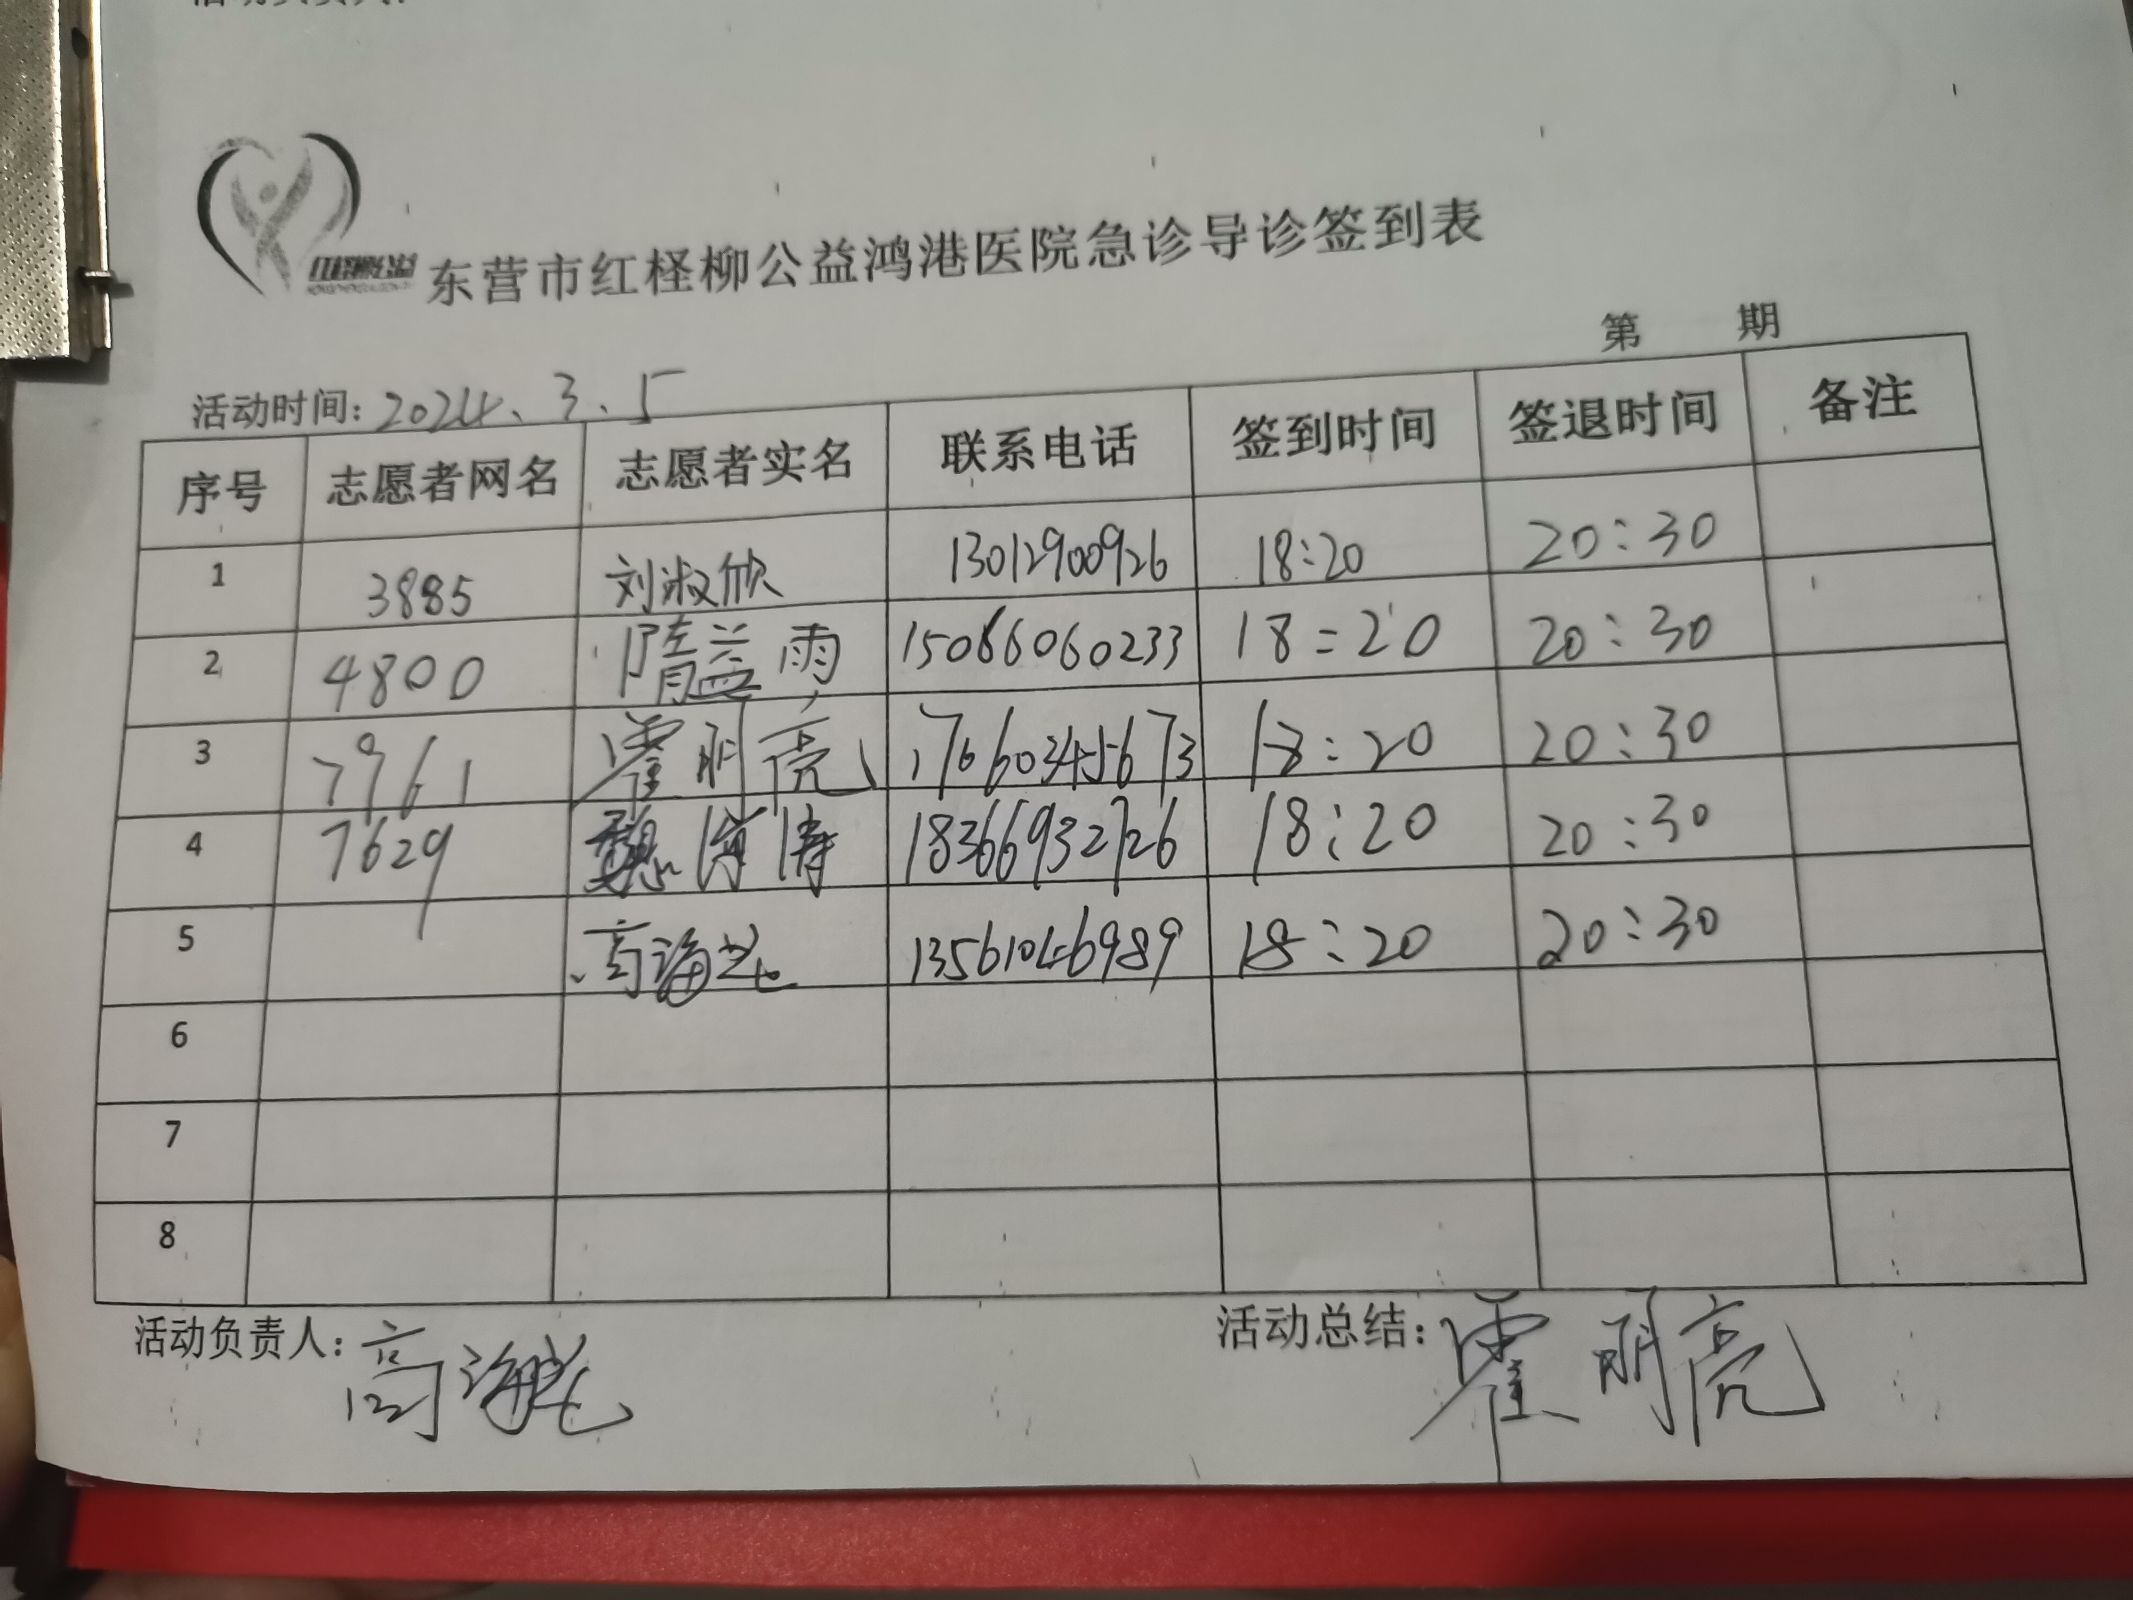 东营市红柽柳公益鸿港医院急诊导诊签到表
第 期
活动时间: 2024.3.5
序号 志愿者网名 志愿者实名 联系电话 签到时间 签退时间 备注
1 3885 刘淑欣 13012900926 18:20 20:30
2 4800 隋益雨 15066060233 18:20 20:30
3 7961 霍明亮 17660345673 18:20 20:30
4 7629 魏海涛 18366932726 18:20 20:30
5 高海 13561046989 18:20 20:30
6
7
8
活动负责人: 高海
活动总结: 霍明亮